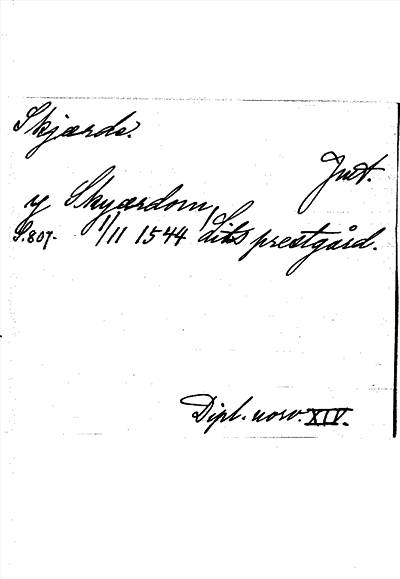 Skjærdo.
Just.
y Skyærdom,
S. 807. 1/11 1544 Lits prestgård.
Dipl. norv. XIV.